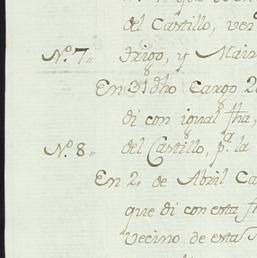 del Castillo, ver
Nº. 7,, Trigo, y Mair
En 31 dho Cargo 2
di con igual fha,
Nº. 8,, del Castillo, pª. la
En 2,, de Abril Ca
que di con esta f
Vecino de esta